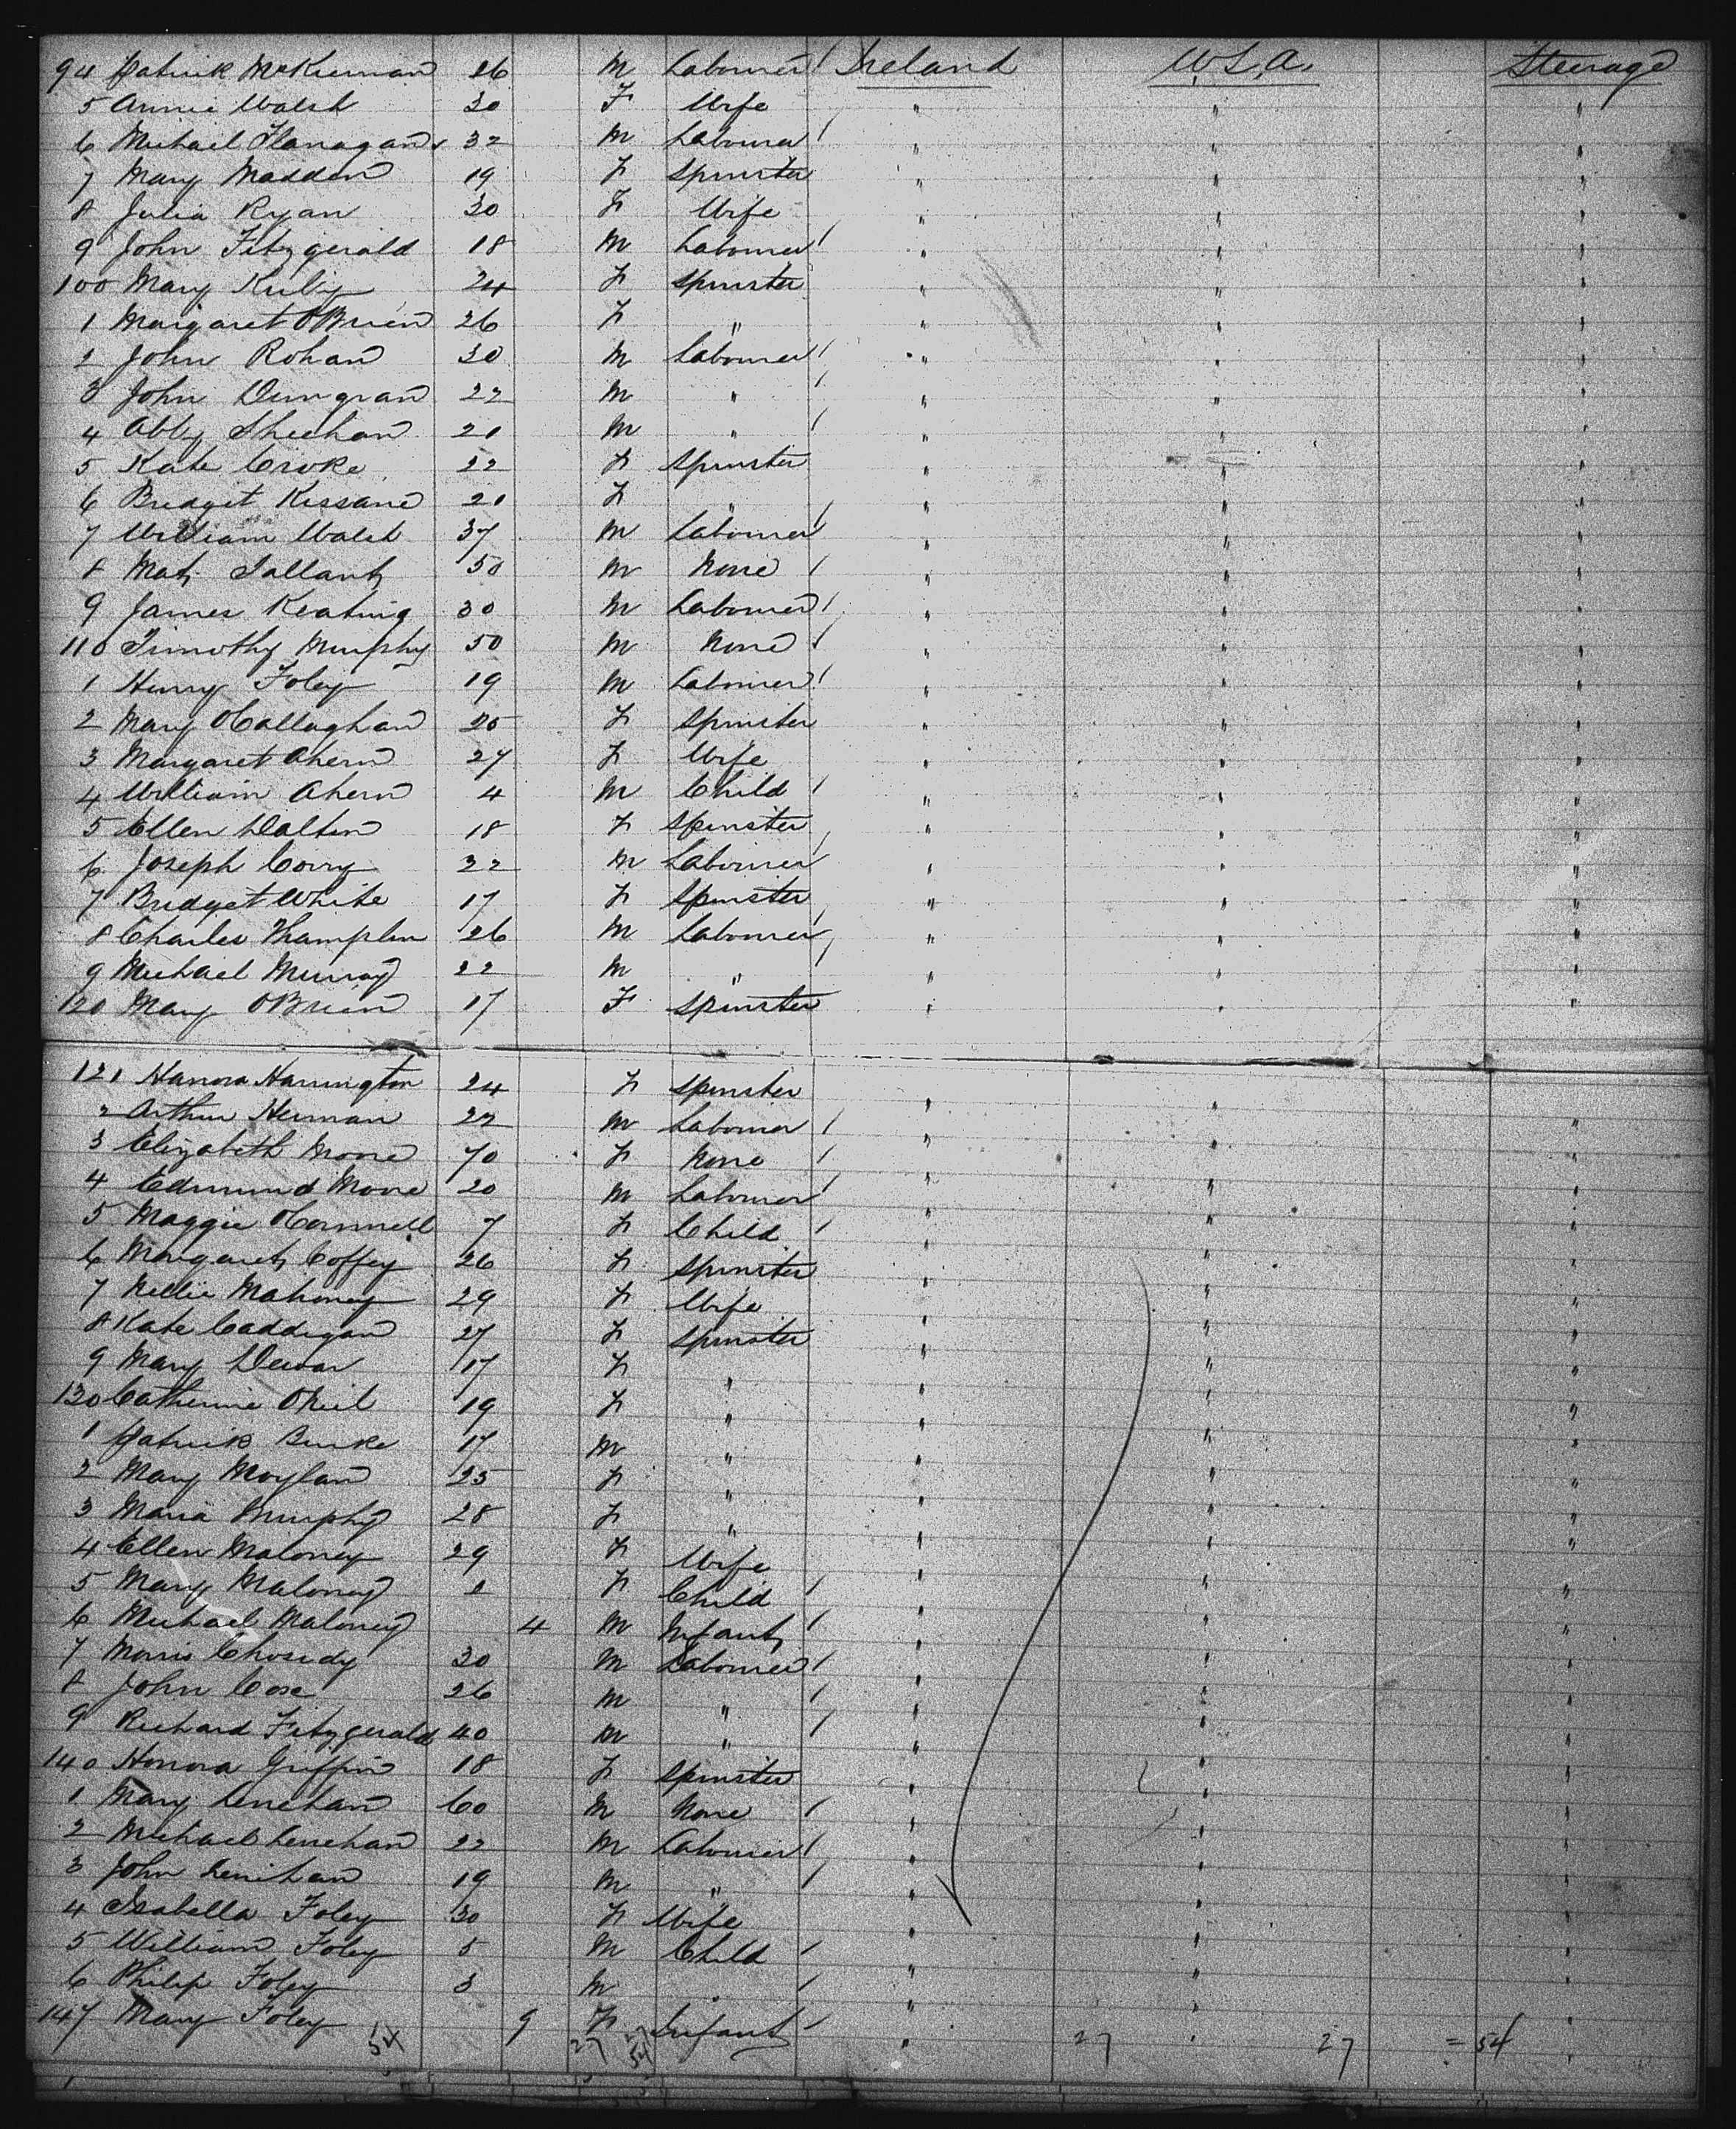 94 Patrick McKiernan 26 M Labourer / Ireland U.S.A. Steerage
5 Annie Walsh 30 F Wife " " "
6 Michael Flanagan 32 M Labourer / " " "
7 Mary Madden 19 F Spinster " " "
8 Julia Ryan 30 F Wife " " "
9 John Fitzgerald 18 M Labourer / " " "
100 Mary 24 F Spinster " " "
1 Margaret OBrien 26 F " " " "
2 John Rohan 30 M Labourer / " " "
3 John 22 M " / " " "
4 Abby Sheehan 20 M " / " " "
5 Kate Croke 22 F Spinster " " "
6 Bridget Kissane 20 F " " " "
7 William Walsh 37 M Labourer / " " "
8 Mat 50 M None / " " "
9 James Keating 30 M Labourer / " " "
110 Timothy Murphy 50 M None / " " "
1 Henry Foley 19 M Labourer / " " "
2 Mary OCallaghan 25 F Spinster " " "
3 Margaret Ahern 27 F Wife " " "
4 William Ahern 4 M Child / " " "
5 Ellen Dalton 18 F Spinster " " "
6 Joseph Corry 22 M Labourer / " " "
7 Bridget White 17 F Spinster " " "
8 Charles 26 M Labourer / " " "
9 Michael Murray 22 M " / " " "
120 Mary OBrien 17 F Spinster " " "
121 Hanora Harrington 24 F Spinster " " "
2 Arthur 22 M Labourer / " " "
3 Elizabeth Moore 70 F None / " " "
4 Edmund Moore 20 M Labourer / " " "
5 Maggie OConnell 7 F Child / " " "
6 Margaret Coffey 26 F Spinster " " "
7 Nellie Mahoney 29 F Wife " " "
8 Kate Caddigan 27 F Spinster " " "
9 Mary 17 F " " " "
130 Catherine ONeil 19 F " " " "
1 Patrick Burke 17 M " " " "
2 Mary Moylan 25 F " " " "
3 Maria Murphy 28 F " " " "
4 Ellen Maloney 29 F Wife " " "
5 Mary Maloney F Child / " " "
6 Michael Maloney 4 M Infant / " " "
7 Morris 30 M Labourer / " " "
8 John 26 M " / " " "
9 Richard Fitzgerald 40 M " / " " "
140 Honora Griffin 18 F Spinster " " "
1 Mary Lenehan 60 M None / " " "
2 Michael Lenehan 22 M Labourer / " " "
3 John Lenihan 19 M " / " " "
4 Isabella Foley 30 F Wife " " "
5 William Foley 5 M Child / " " "
6 Philip Foley 3 M " / " " "
147 Mary Foley 9 F Infant / " " "
54 27 27 54 27 27 = 54